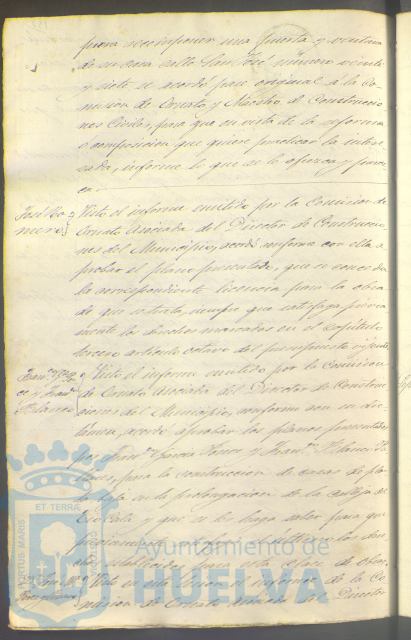 para recomponer una puerta y ventana
de su casa calle San José, número veinte
y siete se acordó pase original á la Co-
mision de Ornato y Maestro de Construccio-
nes Civiles, para que en vista de la reforma
o composicion que quiere practicar la intere-
sada, informe lo que se le ofrezca y parez-
ca.
José Ro-
mero
Visto el informe emitido por la Comision de
Ornato Asociada del Director de Construccio-
nes del Municipio, acordó conforme con ella a-
probar el plano presentado, que se conceda
la correspondiente licencia para la obra
de que se trata, siempre que satisfaga previa-
mente los derechos marcados en el capítulo
tercero articulo octavo del presupuesto vigente
Visto el informe emitido por la Comision
de Ornato Asociada del Director de Construc-
ciones del Municipio, conforme con su dic-
támen, acordó aprobar los planos presentados
por Fran.co Garcia
para la construccion de casas de plan-
ta baja en la prolongacion de la calleja de
y que se les haga saber para que
previamente
establecidos para esta clase de obras
Visto en este el informe de la Co-
mision de Ornato asociada del Director
ET TERRÆ
PORTUS MARIS
CUSTODIA
Ayuntamiento de
HUELVA